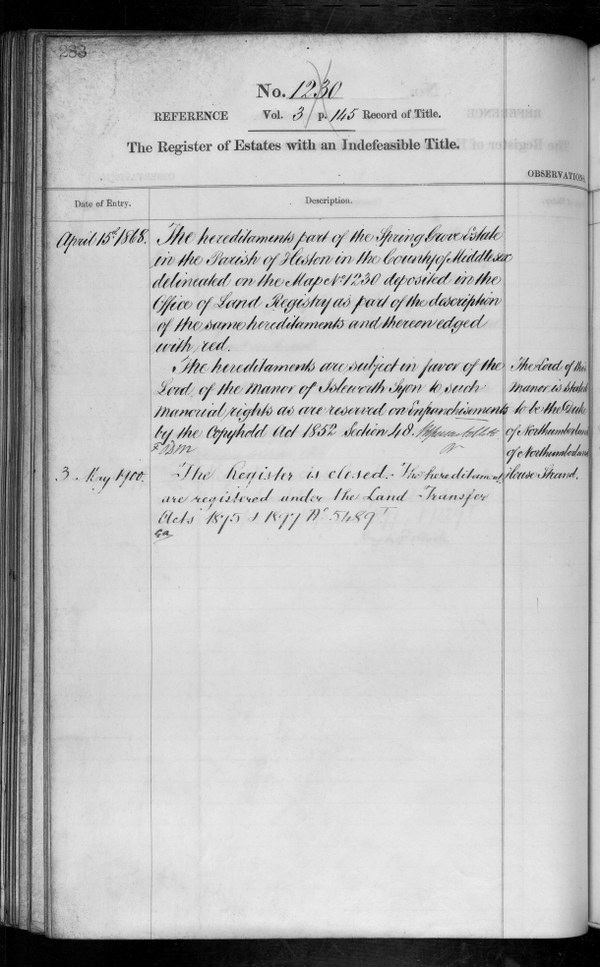 283
No. 1230
REFERENCE Vol. 3 p. 145 Record of Title.
The Register of Estates with an Indefeasible Title.
OBSERVATIONS
Date of Entry. Description.
April 15th 1868. The hereditaments part of the Spring Grove Estate
in the Parish of Heston in the County of Middlesex
delineated on the Map No 1230 deposited in the
Office of Land Registry as part of the description
of the same hereditaments and thereon edged
with red.
The hereditaments are subject in favor of the
Lord of the Manor of Isleworth Syon to such
manorial rights as are reserved on Enfranchisements
by the Copyhold Act 1852 Section 48.
The Lord of this
Manor is
to be the Duke
of Northumberland
of Northumberland
House Strand.
3 May 1900. The Register is closed. The hereditaments
are registered under the Land Transfer
Acts 1875 & 1897 No 5489